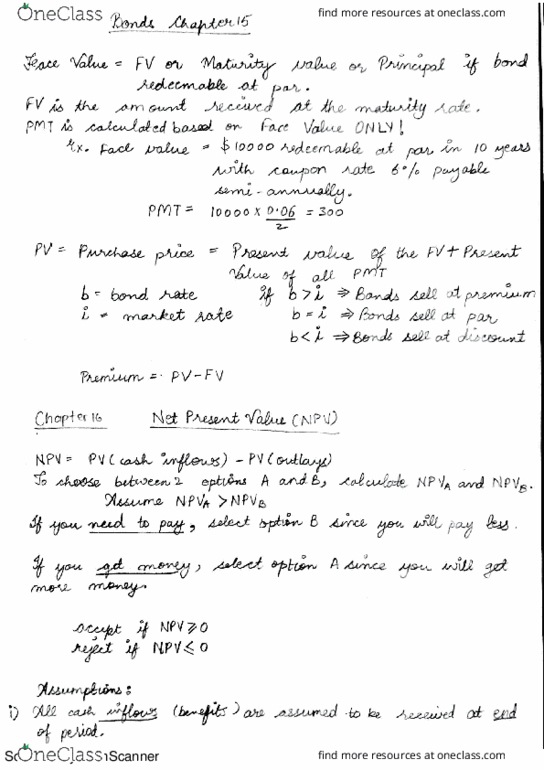 OneClass
find more resources at oneclass.com
Bonds Chapter 15
Face Value = FV or Maturity value or Principal if bond
redeemable at par.
FV is the amount received at the maturity rate.
PMT is calculated based on Face Value ONLY!
Ex. Face value = $10000 redeemable at par in 10 years
with coupon rate 6% payable
semi-annually.
PMT = 10000 x 0.06/2 = 300
PV = Purchase price = Present value of the FV + Present
Value of all PMT
b = bond rate if b > i ⇒ Bonds sell at premium
i = market rate b = i ⇒ Bonds sell at par
b < i ⇒ Bonds sell at discount
Premium = PV - FV
Chapter 16 Net Present Value (NPV)
NPV = PV (cash inflows) - PV (outlays)
To choose between 2 options A and B, calculate NPVA and NPVB.
Assume NPVA > NPVB
If you need to pay, select option B since you will pay less.
If you get money, select option A since you will get
more money.
accept if NPV ⩾ 0
reject if NPV ≤ 0
Assumptions:
i) All cash inflows (benefits) are assumed to be received at end
of period.
OneClass
Scanner
find more resources at oneclass.com